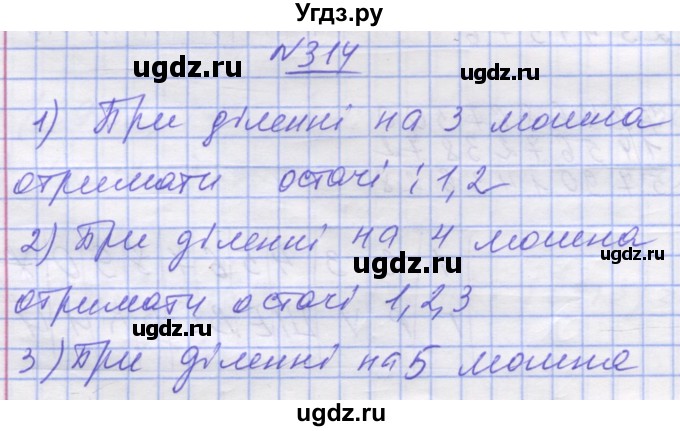 Угдз.ру
№314
ugdz.ru ugdz.ru
1) При діленні на 3 можна
ugdz.ru
отримати остачі : 1,2
2) При діленні на 4 можна
ugdz.ru
отримати остачі 1,2,3
ugdz.ru ugdz.ru
3) При діленні на 5 можна
ugdz.ru